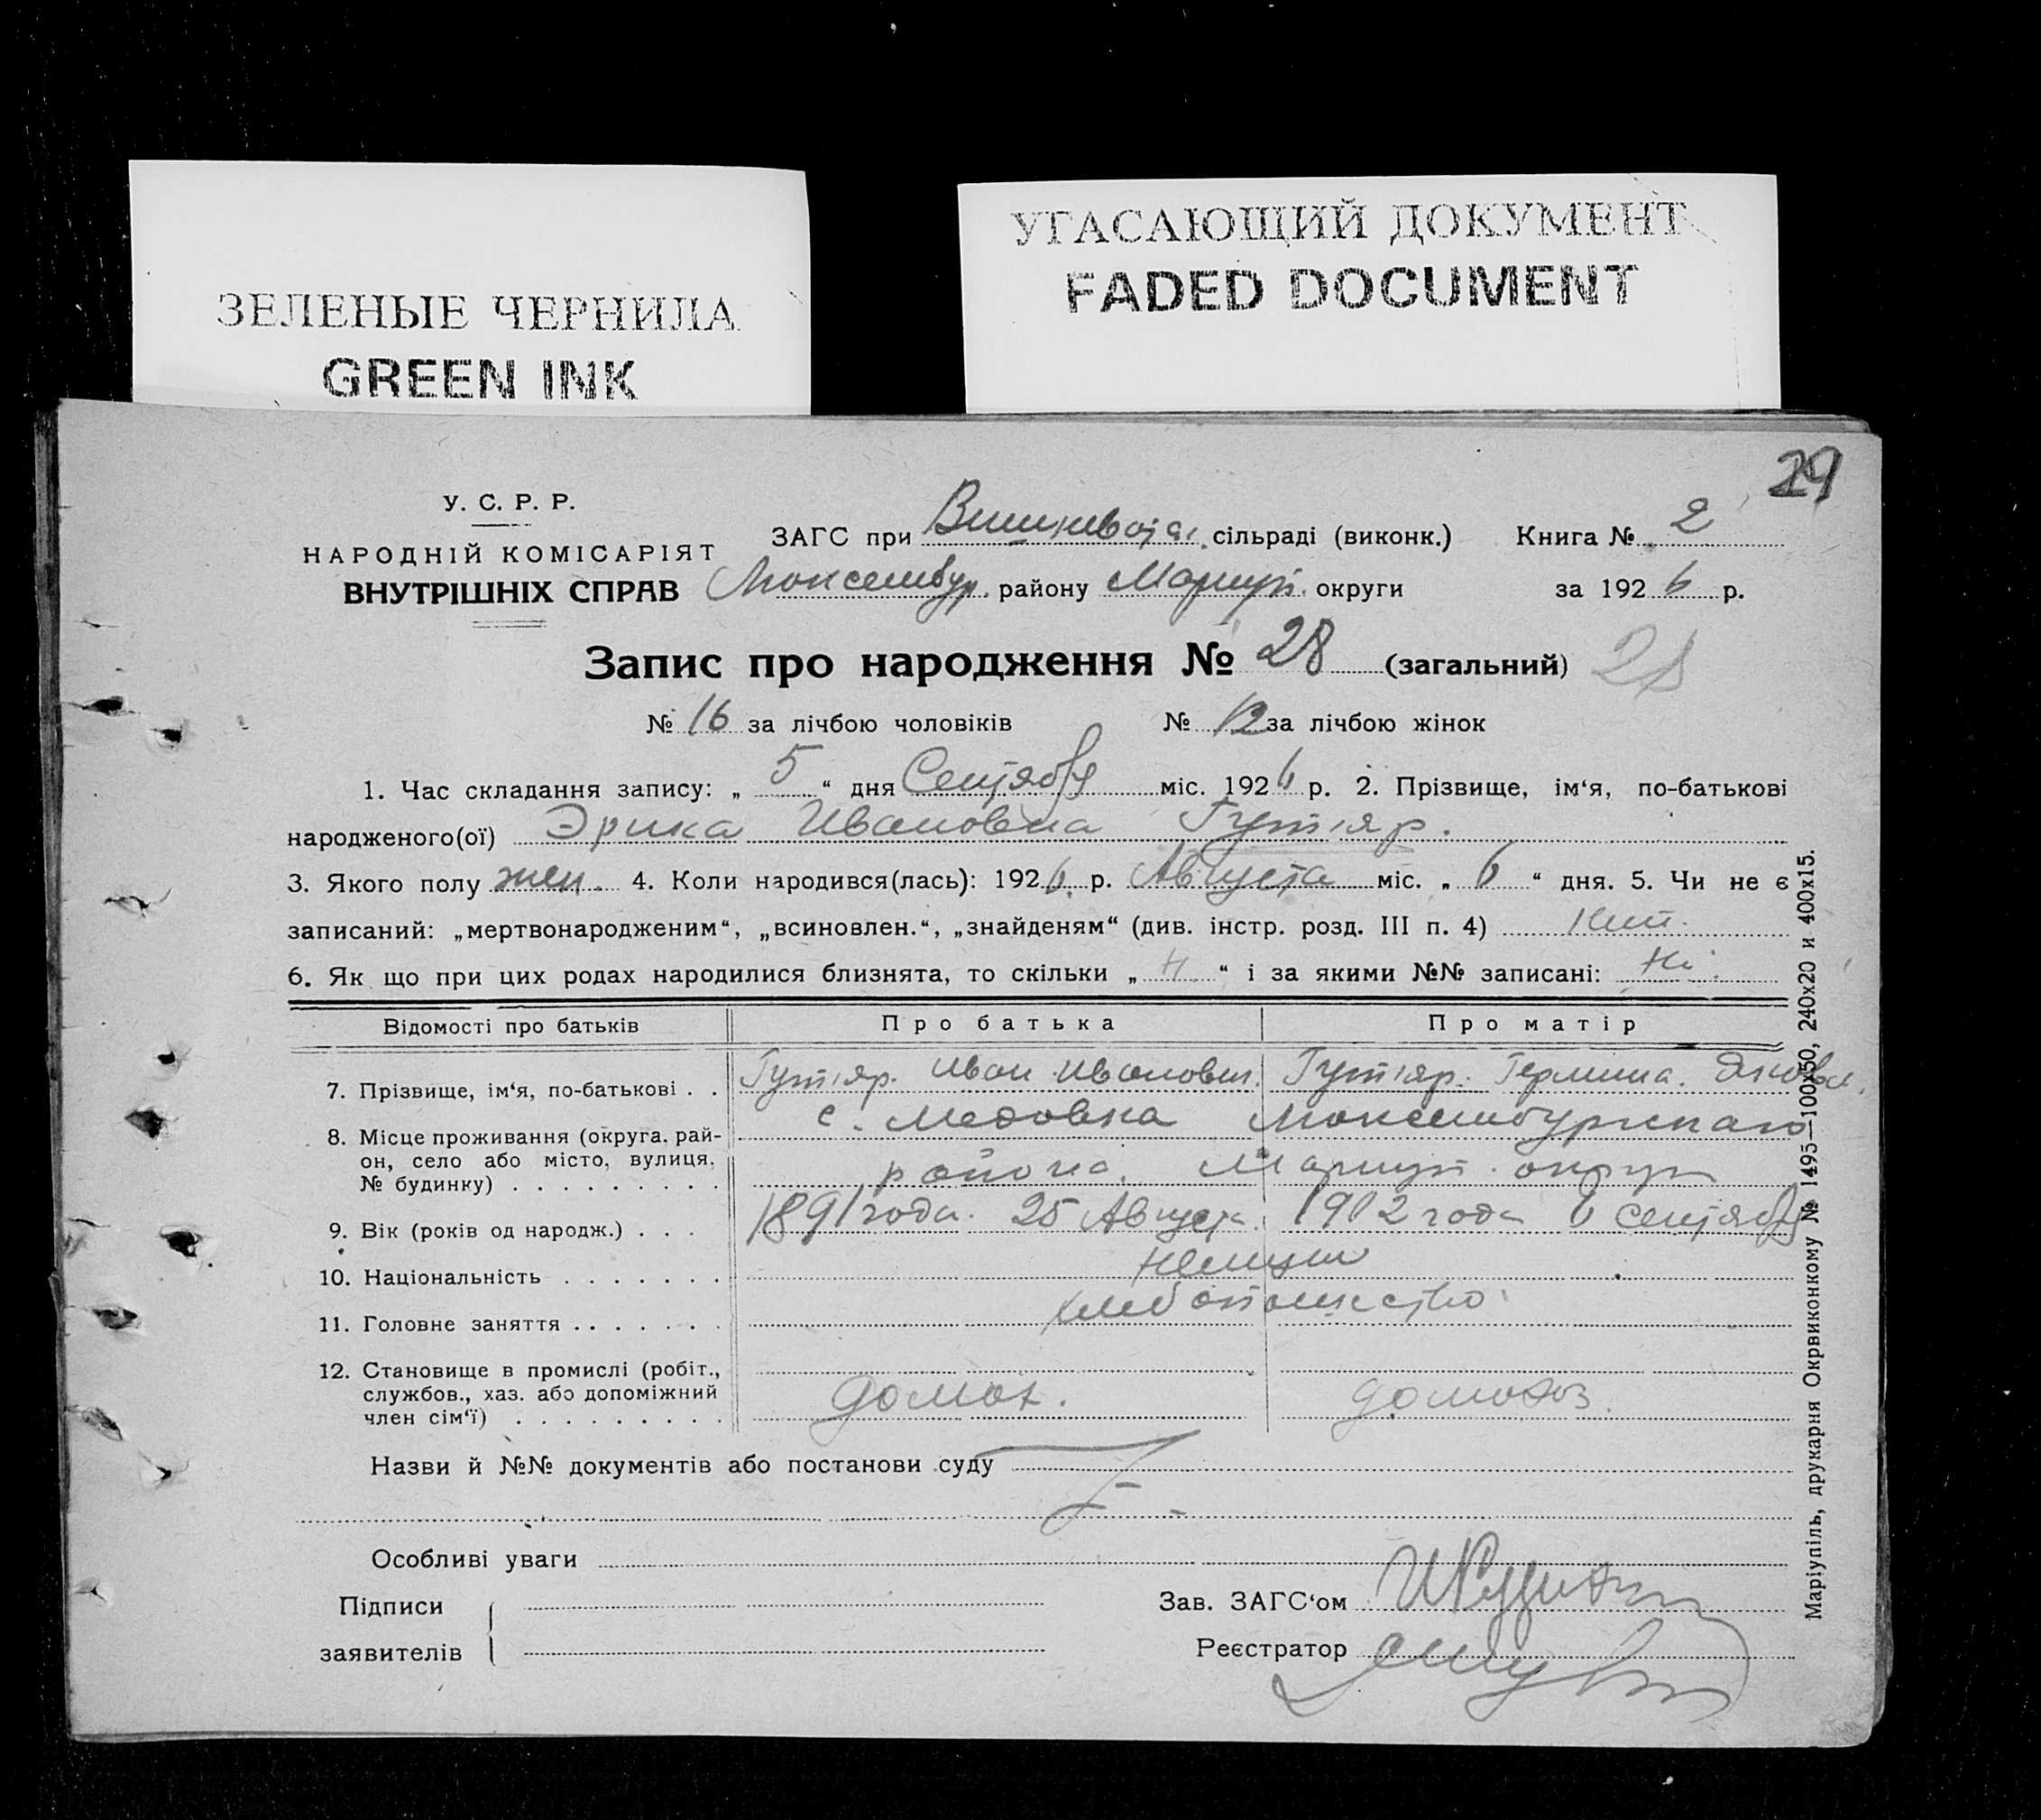 ЗЕЛЕНЫЕ ЧЕРНИЛА
GREEN INK
УГАСАЮЩИЙ ДОКУМЕНТ
FADED DOCUMENT
29
У. С. Р. Р.
НАРОДНІЙ КОМІСАРІЯТ
ВНУТРІШНІХ СПРАВ
ЗАГС при сільраді (виконк.) Книга № 2
району Мариуп. округи за 1926 р.
Запис про народження № 28 (загальний) 28
№ 16 за лічбою чоловіків № 12 за лічбою жінок
1. Час складання запису: „ 5 “ дня Сентября міс. 1926 р. 2. Прізвище, ім‘я, по-батькові
народженого(ої) Эрика Ивановна Гутяр.
3. Якого полу жен. 4. Коли народився(лась): 1926 р. Августа міс. „ 6 “ дня. 5. Чи не є
записаний: „мертвонародженим“, „всиновлен.“, „знайденям“ (див. інстр. розд. III п. 4)
6. Як що при цих родах народилися близнята, то скільки „ Н “ і за якими №№ записані: Ні.
Відомості про батьків Про батька Про матір
7. Прізвище, ім‘я, по-батькові . . Гутяр. Иван Иванович. Гутяр. Термина. Яковл.
8. Місце проживання (округа, рай-
он, село або місто, вулиця,
№ будинку) . . . . . . . . .
с. Медовка
района. Мариуп. округ
9. Вік (років од народж.) . . . 1891 года. 25 Августа. 1912 года 6 сентября
10. Національність . . . . . . . немцы
11. Головне заняття . . . . . . . хлебопашество.
12. Становище в промислі (робіт.,
службов., хаз. або допоміжний
член сім‘ї) . . . . . . . . .
домох. домохоз.
Назви й №№ документів або постанови суду
Особливі уваги
Підписи
заявителів
Зав. ЗАГС‘ом
Реєстратор
Маріупіль, друкарня Окрвиконкому № 1495—100х50, 240х20 и 400х15.